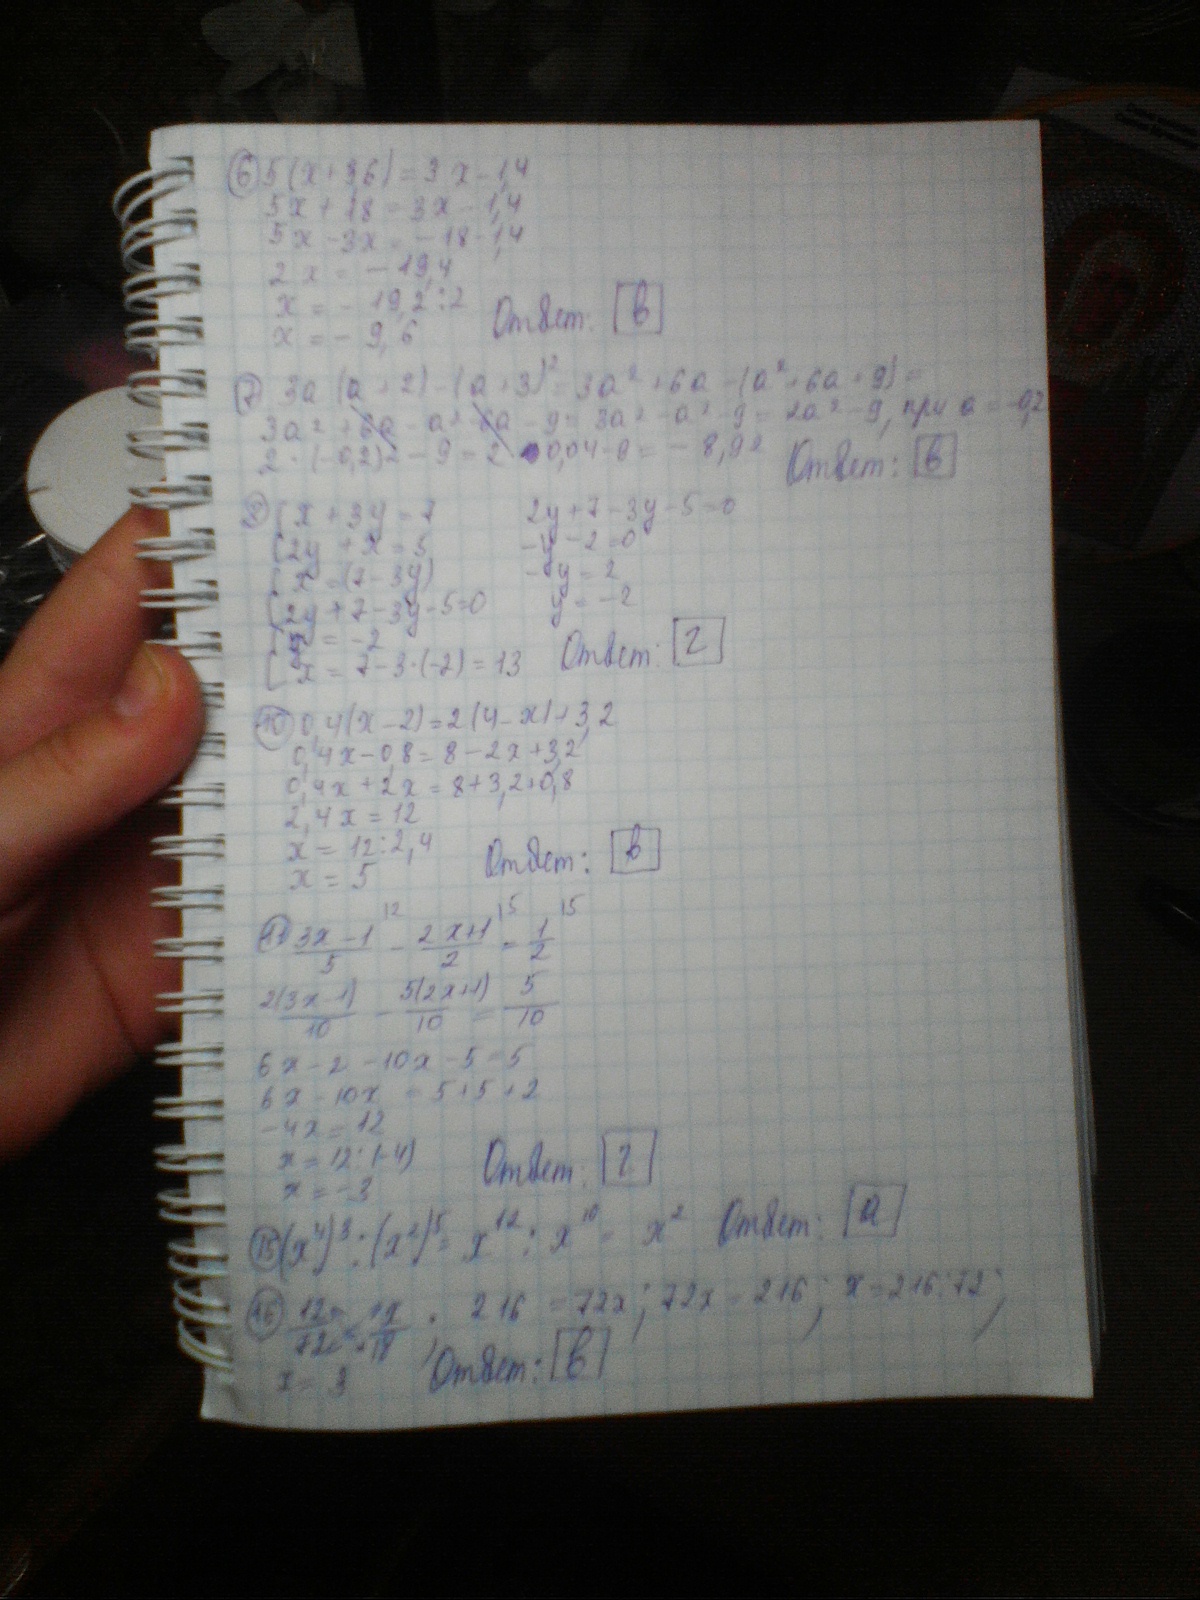 ⑥ 5(x+3,6)=3x-1,4
5x+18=3x-1,4
5x-3x=-18-1,4
2x=-19,4
x=-19,2:2
x=-9,6 Ответ: в
⑦ 3a(a+2)-(a+3)²=3a²+6a-(a²+6a+9)=
3a²+6a-a²-6a-9=3a²-a²-9=2a²-9, при a=-0,2
2·(-0,2)²-9=2·0,04-9=-8,92 Ответ: в
x+3y=7 2y+7-3y-5=0
2y+x=5 -y-2=0
x=(7-3y) -y=2
2y+7-3y-5=0 y=-2
y=-2
x=7-3·(-2)=13 Ответ: г
⑩ 0,4(x-2)=2(4-x)+3,2
0,4x-0,8=8-2x+3,2
0,4x+2x=8+3,2+0,8
2,4x=12
x=12:2,4
x=5 Ответ: в
⑪ (3x-1)/5 |2 - (2x+1)/2 |5 = 1/2 |5
2(3x-1)/10 - 5(2x+1)/10 = 5/10
6x-2-10x-5=5
6x-10x=5+5+2
-4x=12
x=12:(-4)
x=-3 Ответ: г
⑮ (x⁴)³:(x²)⁵=x¹²:x¹⁰=x² Ответ: а
⑯ 216=72x; 72x=216; x=216:72;
x=3 Ответ: в